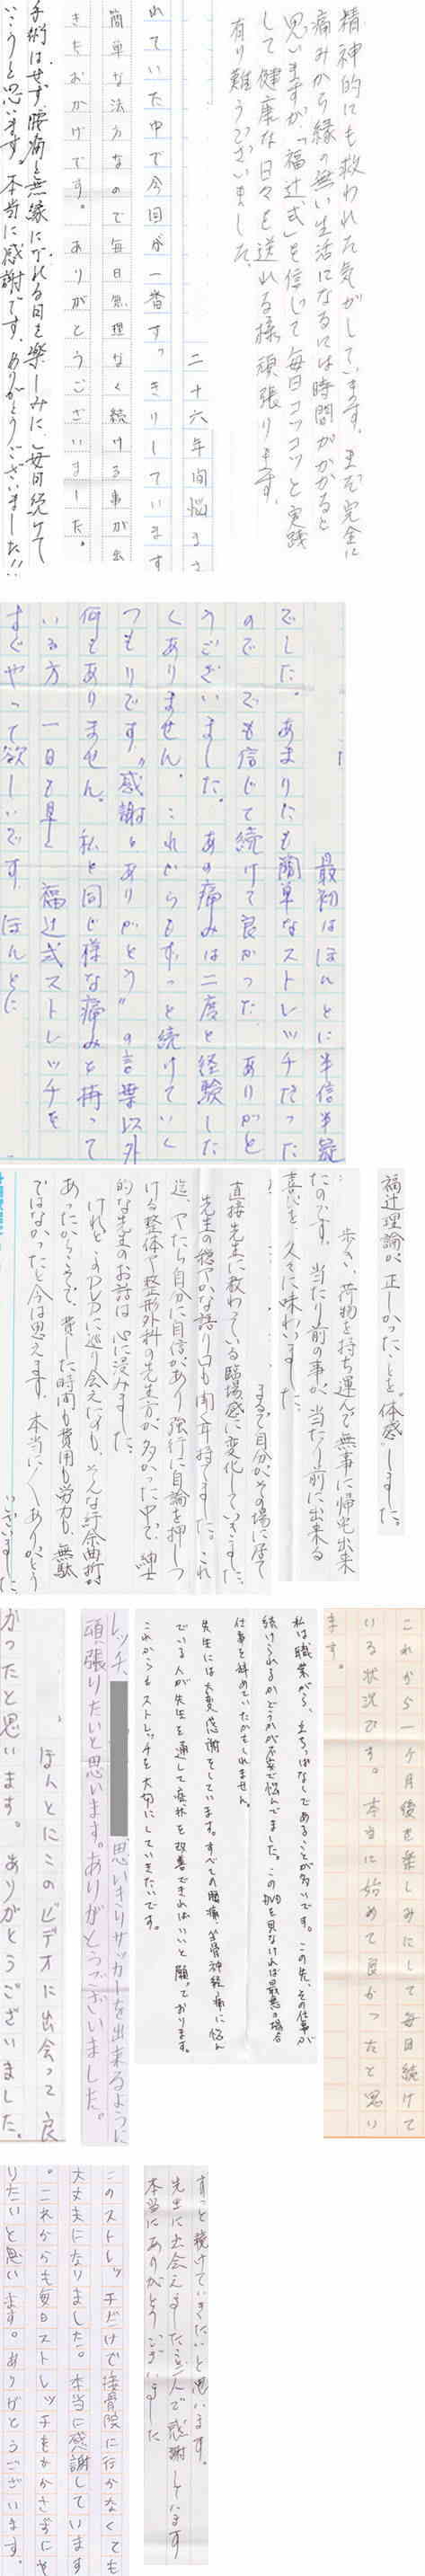 精神的にも救われた気がしています。まだ完全に
痛みから縁の無い生活になるには時間がかかると
思いますが、「福辻式」を信じて毎日コツコツと実践
して健康な日々を送れる様頑張ります。
有り難うございました。
二十六年間悩まさ
れていた中で今回が一番すっきりしています
簡単な方法なので毎日無理なく続ける事が出
きたおかげです。ありがとうございました。
手術はせず、腰痛と無縁になれる日を楽しみに、毎日続けて
いこうと思います。本当に感謝です。ありがとうございました!!
最初はほんとに半信半疑
でした。あまりにも簡単なストレッチだった
ので でも信じて続けて良かった。ありがと
うございました。あの痛みは二度と経験した
くありません。これからもずっと続けていく
つもりです。"感謝とありがとう"の言葉以外
何もありません。私と同じ様な痛みを持って
いる方 一日も早く 福辻式ストレッチを
すぐやって欲しいです ほんとに
福辻理論が正しかったことを"体感"しました。
歩き、荷物を持ち運んで無事に帰宅出来
たのです。当たり前の事が当たり前に出来る
喜びを、久々に味わいました。
まるで自分がその場に居て
直接先生に教わっている臨場感に変化していきました。
先生の穏やかな語り口も関心持てました。これ
迄、やたら自分に自信があり強行に自論を押しつ
ける整体や整形外科の先生方が多かった中で、紳士
的な先生のお話は心に浸みました。
けれどこのDVDに巡り会えたのも、そんな紆余曲折が
あったからこそで、費した時間も費用も労力も、無駄
ではなかったと今は思えます。本当に〱ありがとう
ございました。
これから一ヶ月後を楽しみにして毎日続けて
いる状況です。本当に始めて良かったと思い
ます。
私は職業がら、立ちっぱなしであることが多いです。この先、その仕事が
続けられるかどうかが不安で悩んでました。このDVDを見なければ最悪の場合
仕事を辞めていたかもしれません。
先生には大変感謝をしています。すべての腰痛、坐骨神経痛に悩ん
でいる人が先生を通して症状を改善できればいいと願っております。
これからもストレッチを大切にしていきたいです。
レッチ、
思いきりサッカーを出来るように
頑張りたいと思います。ありがとうございました。
ほんとにこのビデオに出会って良
かったと思います。ありがとうございました。
ずっと続けていきたいと思います。
先生に出会えました事、心で感謝しています
本当にありがとうございました
このストレッチだけで接骨院に行かなくても
大丈夫になりました。本当に感謝しています
。これからも毎日ストレッチをかかさずにや
りたいと思います。ありがとうございます。